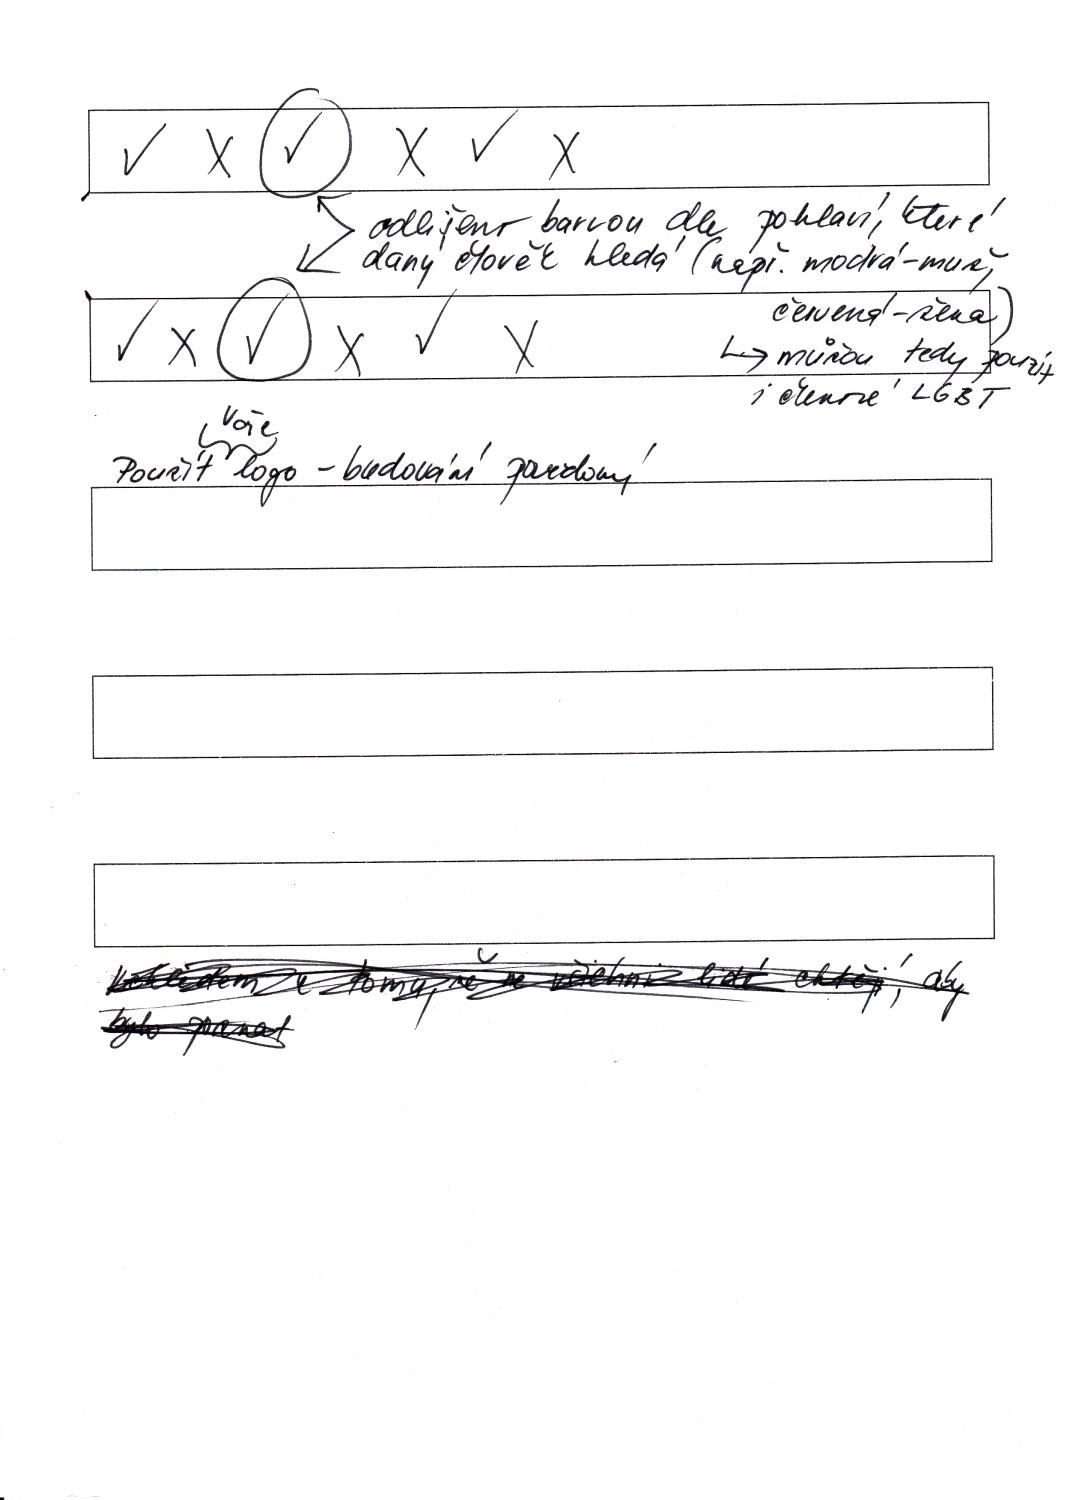 ✓ X ✓ X ✓ X
odlišeno barvou dle pohlaví, které
daný člověk hledá (např. modrá-muž,
✓ X ✓ X ✓ X
červená-žena)
↳ můžou tedy použít
i členové LGBT
Vaše
Použít logo - budování povědomí
k tomu, že ne všichni lidé chtějí, aby
bylo poznat